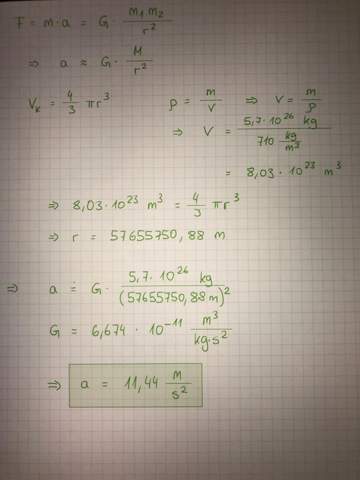 F = m · a = G · m₁ · m₂ / r²
⇒ a = G · M / r²
Vₖ = 4/3 πr³ ρ = m/V ⇒ V = m/ρ
⇒ V = 5,7 · 10²⁶ kg / 710 kg/m³
= 8,03 · 10²³ m³
⇒ 8,03 · 10²³ m³ = 4/3 πr³
⇒ r = 57655750,88 m
⇒ a = G · 5,7 · 10²⁶ kg / (57655750,88 m)²
G = 6,674 · 10⁻¹¹ m³ / kg·s²
⇒ a = 11,44 m/s²